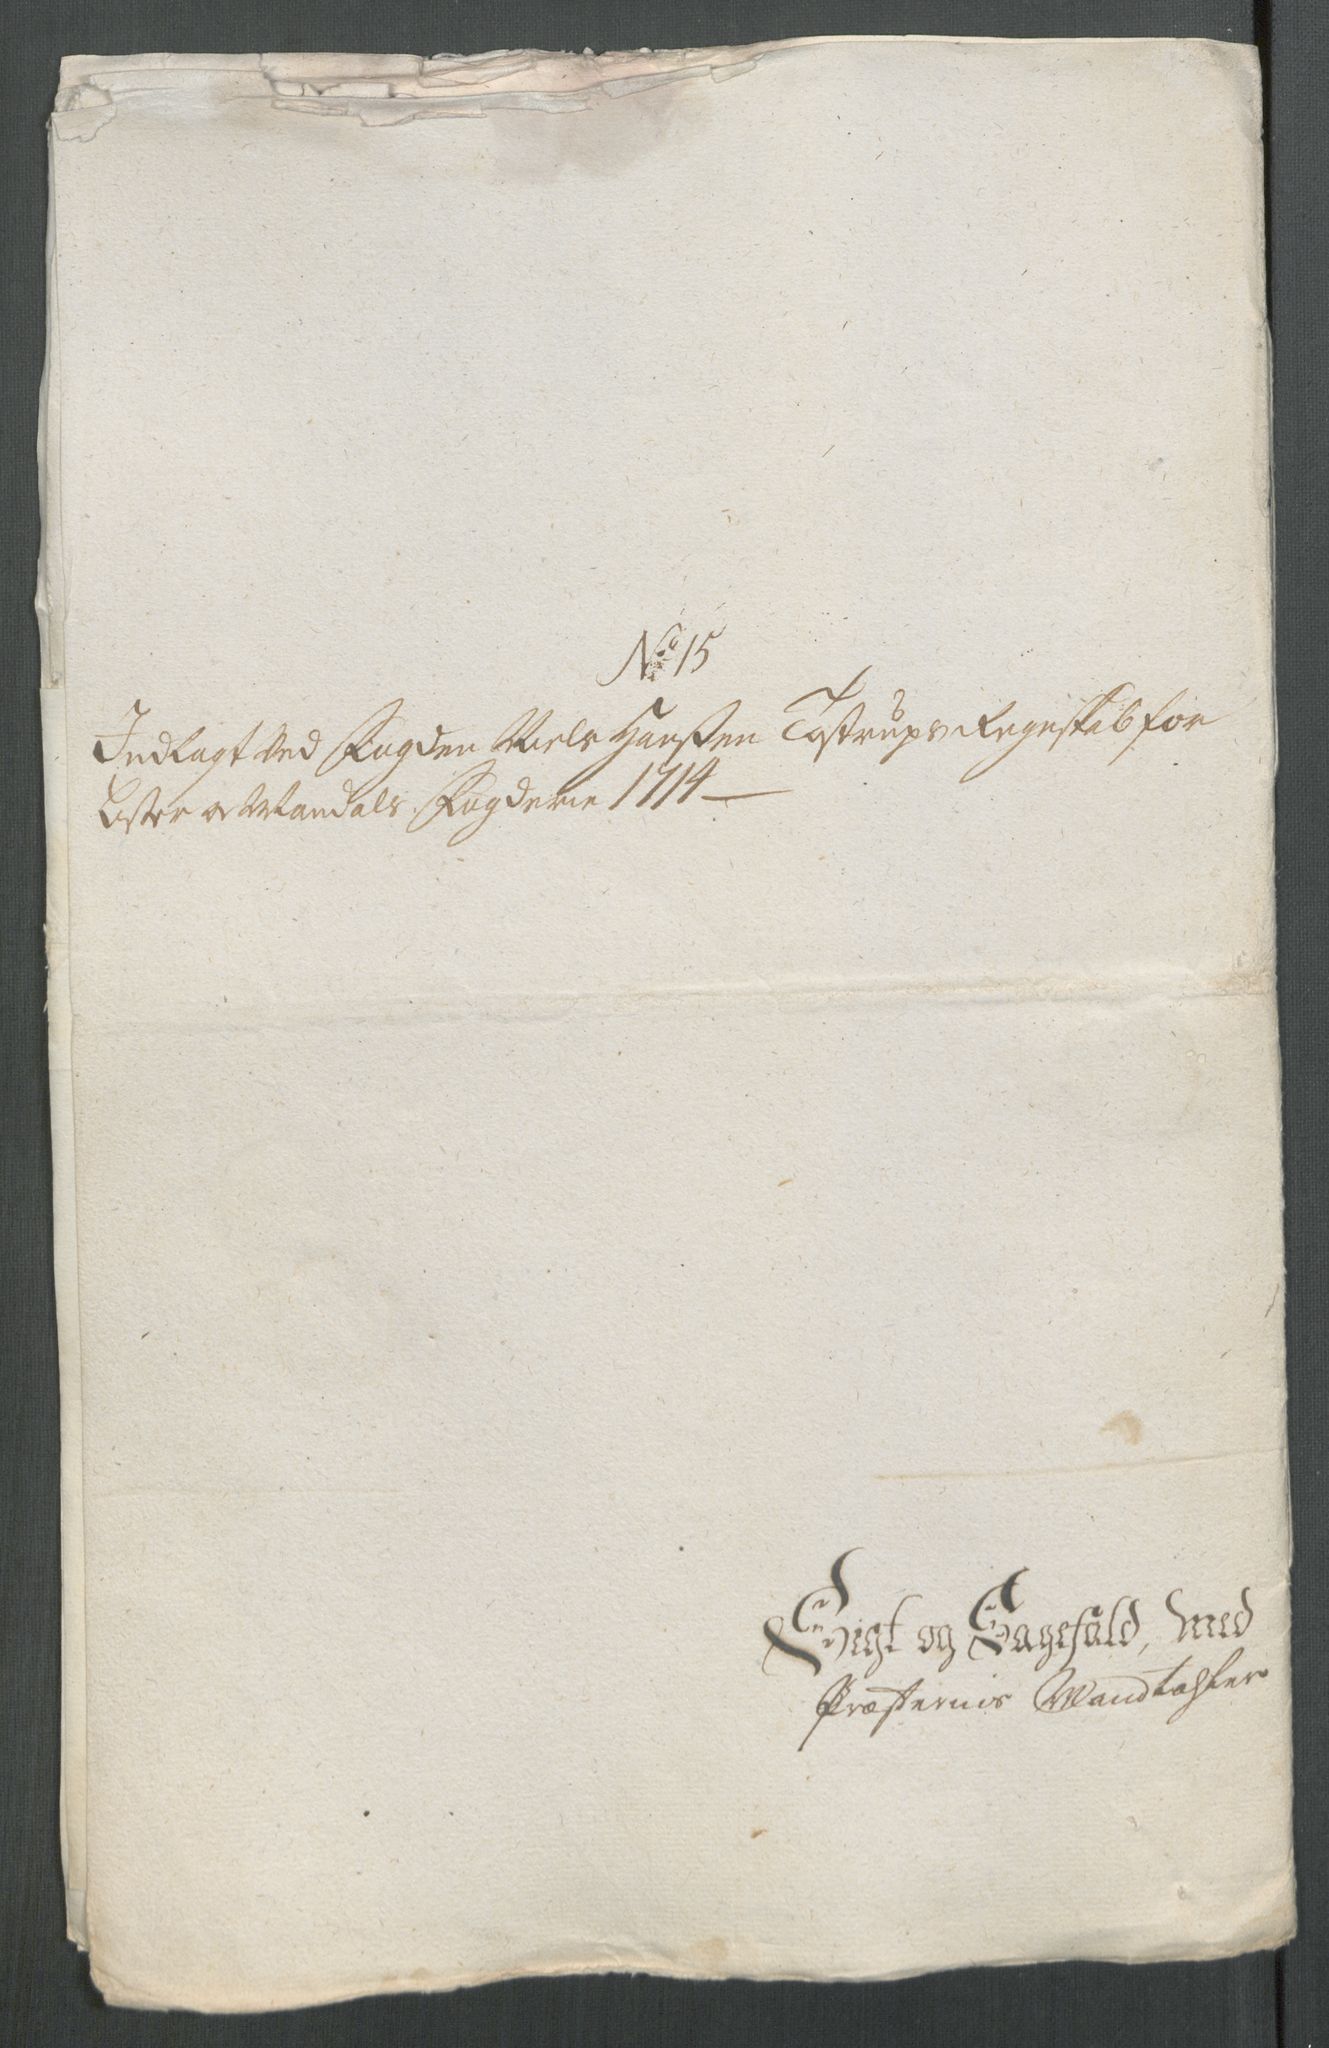 No 15
Indlagt Ved Fogden Niels Hanßen Tostrups Regenskab for
Lister og Mandals Fogderie 1714
Sigt og Sagefald, med
Præsternis Mandtahler